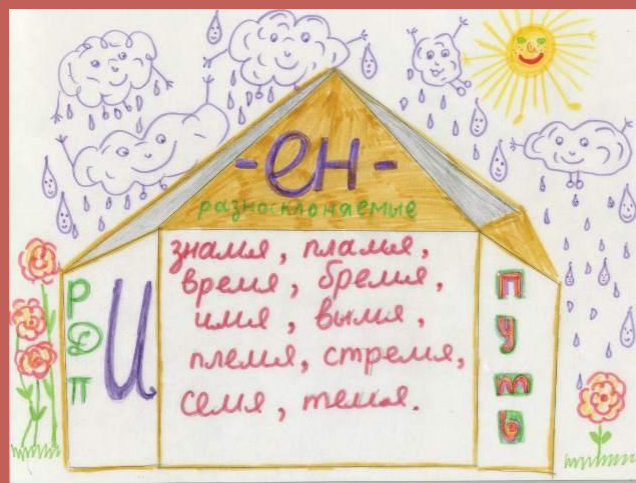 -ен-
разносклоняемые
Р
Д
П
И
знамя, пламя,
время, бремя,
имя, вымя,
племя, стремя,
семя, темя.
П
У
Т
Ь